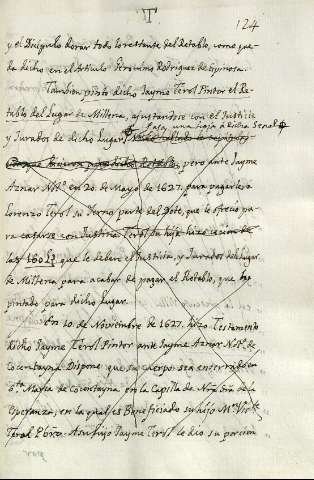 T
124
y el Discipulo Dorar todo lo restante del Retablo, como que-
da dicho en el Articulo Geronimo Rodriguez de Espinosa.
Tambien pintó dicho Jayme Terol Pintor el Re-
tablo del Lugar de Millena, ajustandose con el Justicia
y Jurados de dicho Lugar
pero ante Jayme
Aznar Not.º en 20. de Mayo de 1627. para pagar à
Lorenzo Terol su Yerno parte del Dote, que le ofreció pa-
ra casarse con Justina Terol su hija hizo cesion de
las 160 que le deben el Justicia, y Jurados del Lugar
de Millena para acabar de pagar el Retablo, que
pintado para dicho Lugar.
En 10. de Noviembre de 1627. hizo Testamento
dicho Jayme Terol Pintor ante Jayme Aznar Not.º de
Cocentayna. Dispone que su cuerpo sea enterrado en
S.ta Maria de Cocentayna en la Capilla de Nra. Sra. de la
Esperanza, en la qual es Beneficiado su hijo M.n
Terol Pbro. A su hijo Jayme Terol le dio su porcion